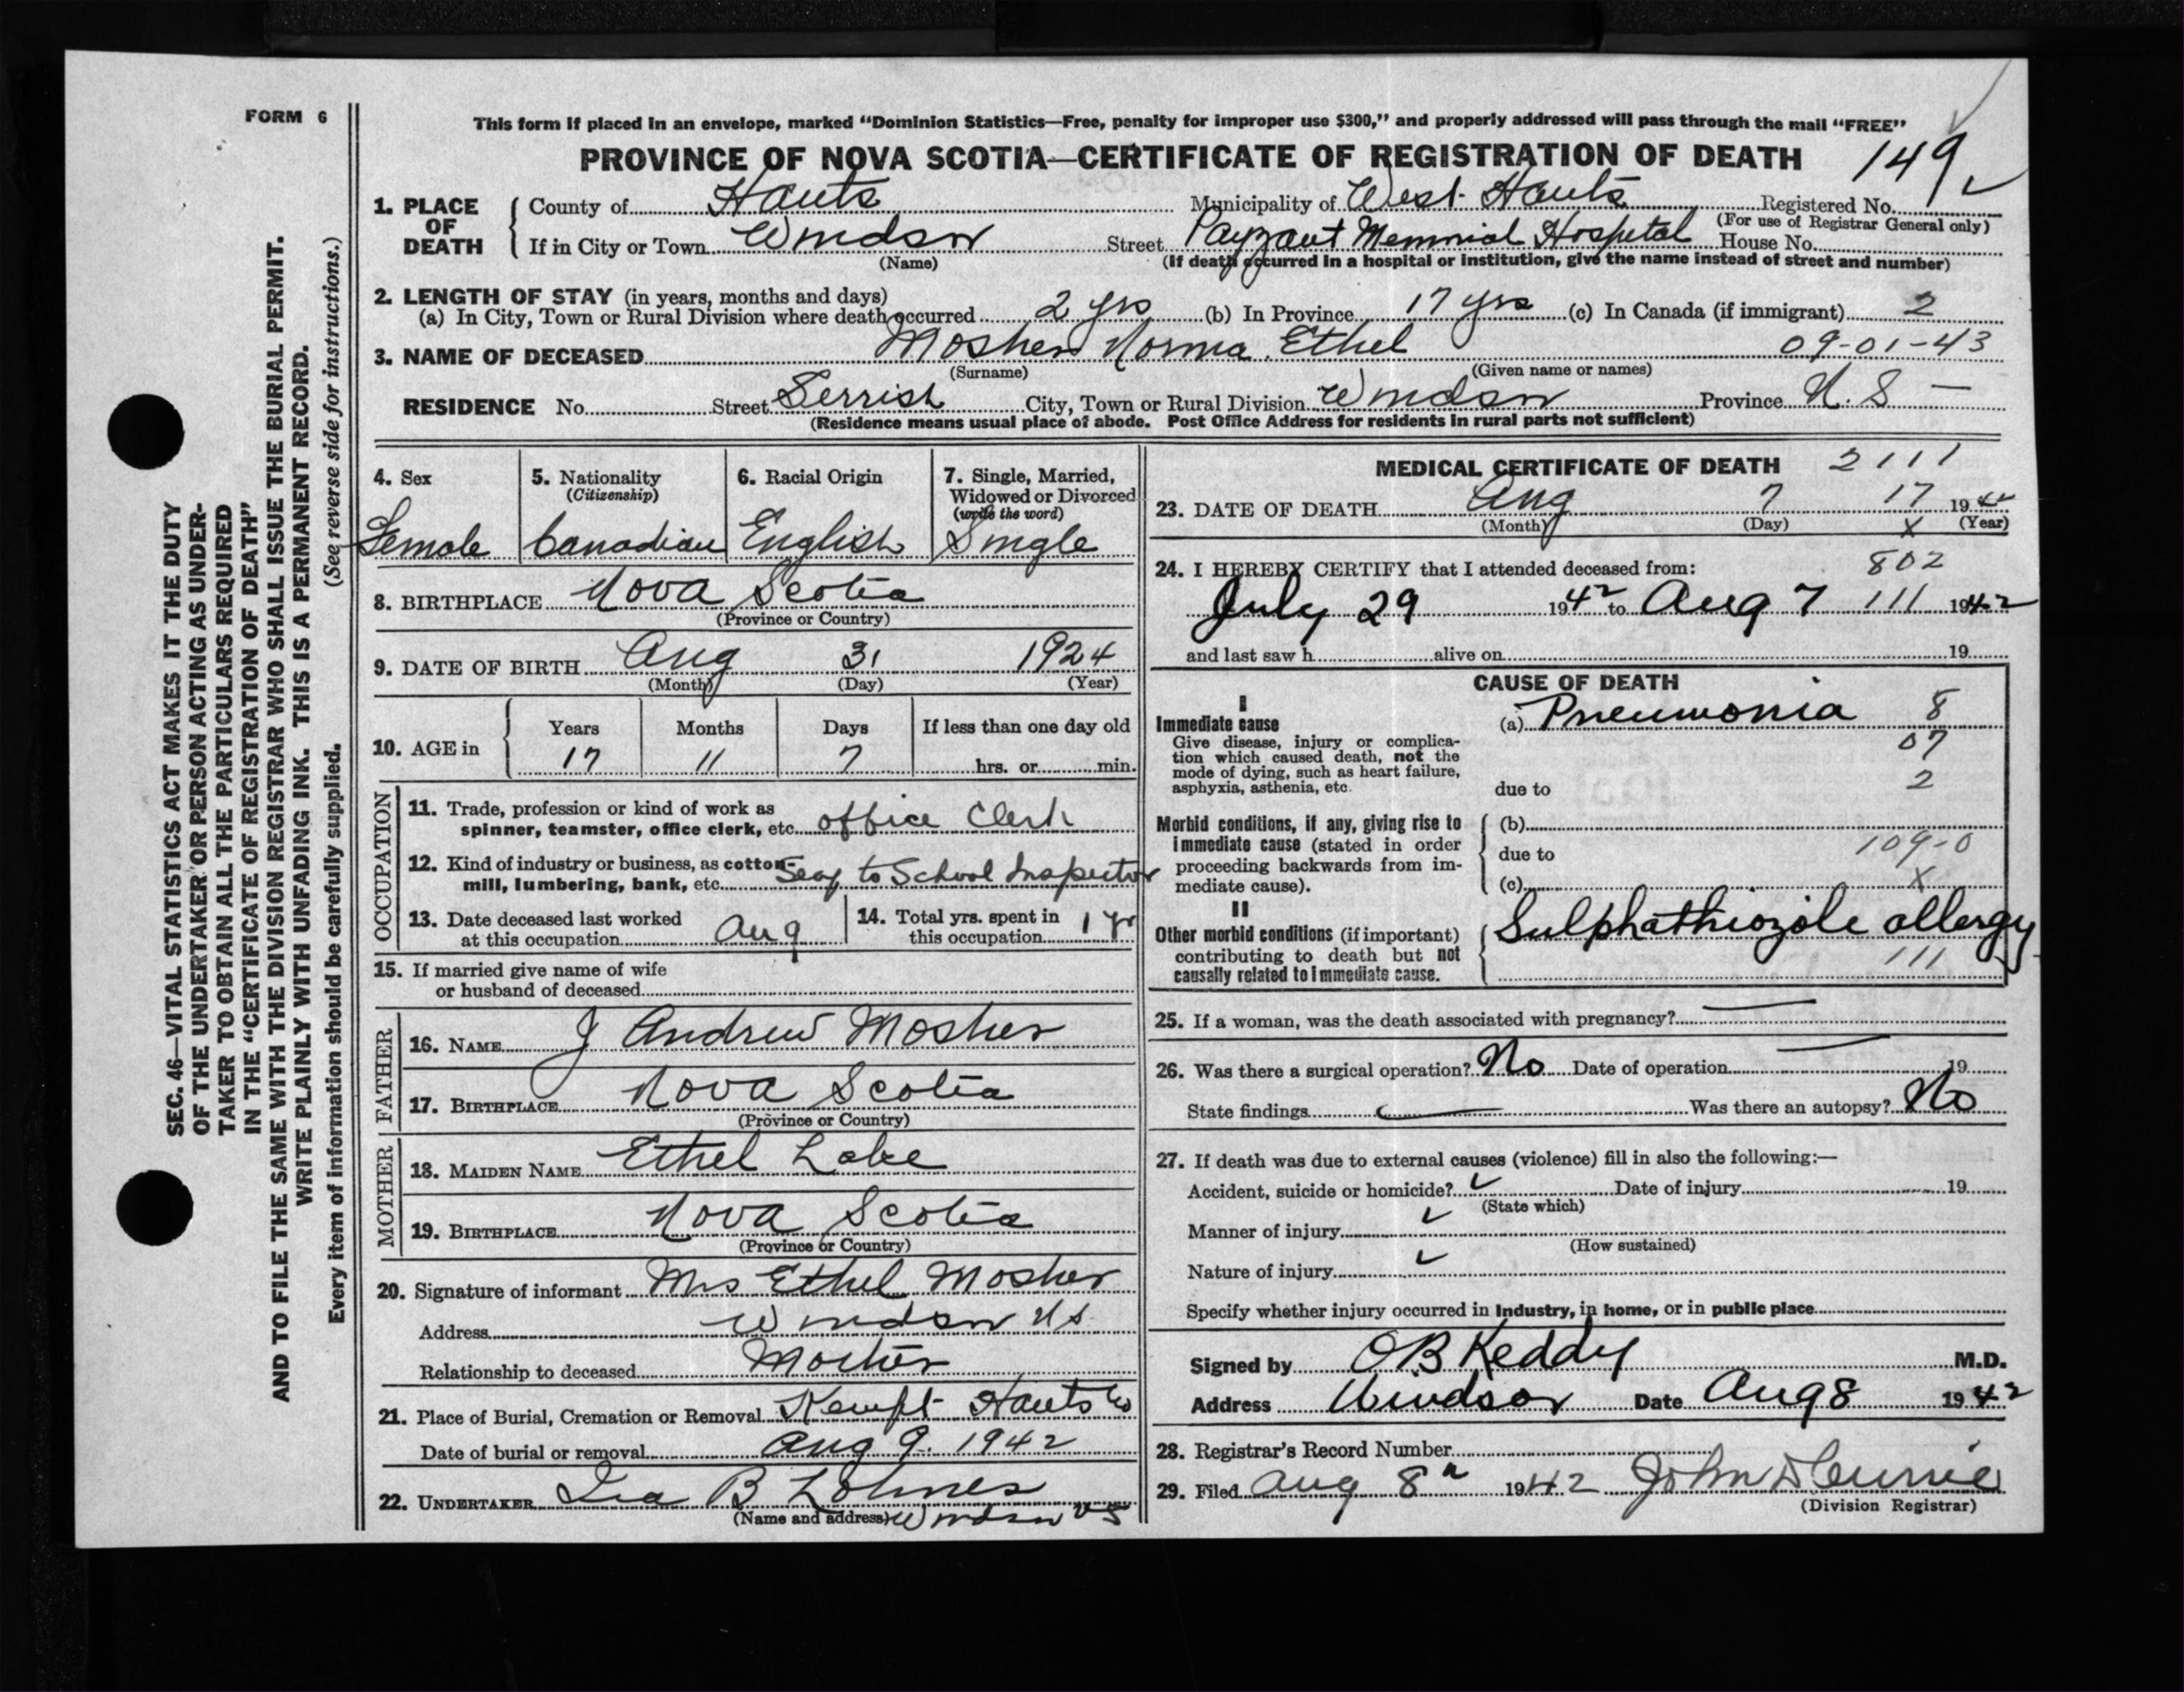 FORM 6
This form if placed in an envelope, marked “Dominion Statistics—Free, penalty for improper use $300,” and properly addressed will pass through the mail “FREE”
PROVINCE OF NOVA SCOTIA—CERTIFICATE OF REGISTRATION OF DEATH 149
1. PLACE OF DEATH
County of Hants Municipality of West Hants Registered No.
(For use of Registrar General only)
If in City or Town Windsor Street Payzant Memorial Hospital House No.
(Name) (If death occurred in a hospital or institution, give the name instead of street and number)
2. LENGTH OF STAY (in years, months and days)
(a) In City, Town or Rural Division where death occurred 2 yrs (b) In Province 17 yrs (c) In Canada (if immigrant) 2
3. NAME OF DECEASED Mosher Norma Ethel 09-01-43
(Surname) (Given name or names)
RESIDENCE No. Street City, Town or Rural Division Windsor Province N. S —
(Residence means usual place of abode. Post Office Address for residents in rural parts not sufficient)
4. Sex
Female
5. Nationality
(Citizenship)
Canadian
6. Racial Origin
English
7. Single, Married,
Widowed or Divorced
(write the word)
Single
8. BIRTHPLACE Nova Scotia
(Province or Country)
9. DATE OF BIRTH Aug 31 1924
(Month) (Day) (Year)
10. AGE in
Years Months Days If less than one day old
17 11 7 hrs. or min.
OCCUPATION
11. Trade, profession or kind of work as
spinner, teamster, office clerk, etc. office Clerk
12. Kind of industry or business, as cotton-
mill, lumbering, bank, etc. Secy to School Inspector
13. Date deceased last worked
at this occupation Aug
14. Total yrs. spent in
this occupation 1 yr
15. If married give name of wife
or husband of deceased
FATHER
16. NAME J Andrew Mosher
17. BIRTHPLACE Nova Scotia
(Province or Country)
MOTHER
18. MAIDEN NAME Ethel Lake
19. BIRTHPLACE Nova Scotia
(Province or Country)
20. Signature of informant Mrs Ethel Mosher
Address Windsor NS
Relationship to deceased Mother
21. Place of Burial, Cremation or Removal Kempt Hants Co
Date of burial or removal Aug 9. 1942
22. UNDERTAKER Ira B Lohnes
(Name and address) Windsor NS
MEDICAL CERTIFICATE OF DEATH 2111
23. DATE OF DEATH Aug 7 17 1942
(Month) (Day) X (Year)
24. I HEREBY CERTIFY that I attended deceased from: 802
July 29 1942 to Aug 7 111 1942
and last saw h alive on 19
CAUSE OF DEATH
I
Immediate cause (a) Pneumonia 8
Give disease, injury or complica-
tion which caused death, not the
mode of dying, such as heart failure,
asphyxia, asthenia, etc.
07
due to 2
Morbid conditions, if any, giving rise to
immediate cause (stated in order
proceeding backwards from im-
mediate cause).
(b)
due to 109-0
(c) X
II
Other morbid conditions (if important)
contributing to death but not
causally related to immediate cause.
Sulphathiozole allergy
111
25. If a woman, was the death associated with pregnancy? —
26. Was there a surgical operation? No Date of operation — 19
State findings — Was there an autopsy? No
27. If death was due to external causes (violence) fill in also the following:—
Accident, suicide or homicide? ✓ Date of injury 19
(State which)
Manner of injury ✓
(How sustained)
Nature of injury ✓
Specify whether injury occurred in Industry, in home, or in public place
Signed by OB Keddy M.D.
Address Windsor Date Aug 8 1942
28. Registrar's Record Number
29. Filed Aug 8 1942 John D Currie
(Division Registrar)
SEC. 46—VITAL STATISTICS ACT MAKES IT THE DUTY
OF THE UNDERTAKER OR PERSON ACTING AS UNDER-
TAKER TO OBTAIN ALL THE PARTICULARS REQUIRED
IN THE “CERTIFICATE OF REGISTRATION OF DEATH”
AND TO FILE THE SAME WITH THE DIVISION REGISTRAR WHO SHALL ISSUE THE BURIAL PERMIT.
WRITE PLAINLY WITH UNFADING INK. THIS IS A PERMANENT RECORD.
Every item of information should be carefully supplied. (See reverse side for instructions.)